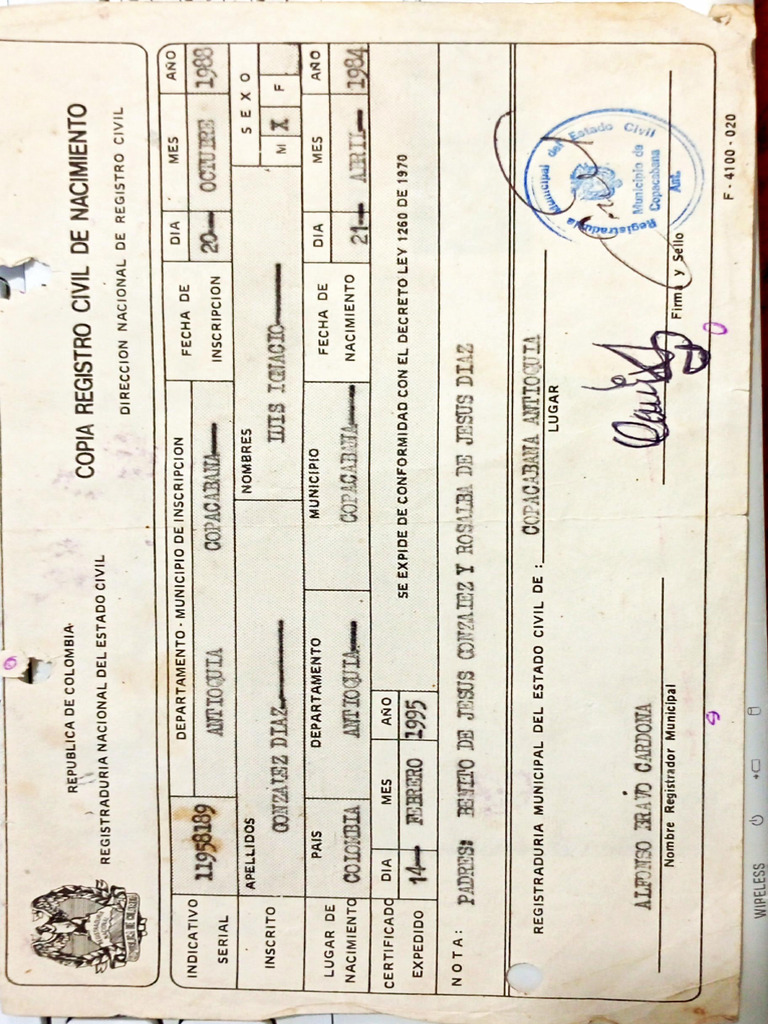 REPUBLICA DE COLOMBIA
REGISTRADURIA NACIONAL DEL ESTADO CIVIL
COPIA REGISTRO CIVIL DE NACIMIENTO
DIRECCION NACIONAL DE REGISTRO CIVIL
INDICATIVO SERIAL
11958189
DEPARTAMENTO - MUNICIPIO DE INSCRIPCION
ANTIOQUIA COPACABANA
FECHA DE INSCRIPCION
DIA MES AÑO
20 OCTUBRE 1988
INSCRITO
APELLIDOS
GONZALEZ DIAZ
NOMBRES
LUIS IGNACIO
SEXO
M X F
LUGAR DE NACIMIENTO
PAIS DEPARTAMENTO MUNICIPIO
COLOMBIA ANTIOQUIA COPACABANA
FECHA DE NACIMIENTO
DIA MES AÑO
21 ABRIL 1984
CERTIFICADO EXPEDIDO
DIA MES AÑO
14 FEBRERO 1995
SE EXPIDE DE CONFORMIDAD CON EL DECRETO LEY 1260 DE 1970
NOTA: PADRES: BENITO DE JESUS GONZALEZ Y ROSALBA DE JESUS DIAZ
REGISTRADURIA MUNICIPAL DEL ESTADO CIVIL DE: COPACABANA ANTIOQUIA
LUGAR
ALFONSO BRAVO CARDONA
Nombre Registrador Municipal
Firma y Sello
Registraduria Municipal del Estado Civil
Municipio de
Copacabana
Ant.
F - 4100 - 020
WIRELESS